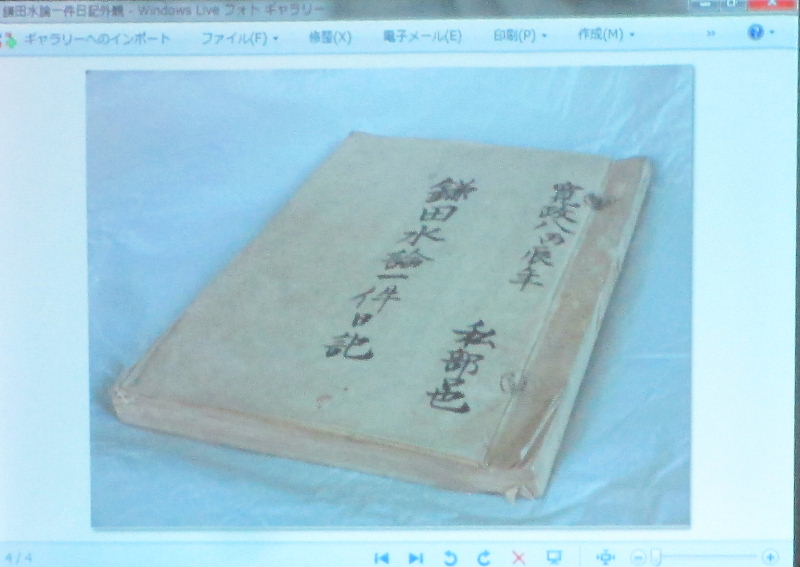 鎌田水論一件日記外観 - Windows Live フォト ギャラリー
ギャラリーへのインポート ファイル(F) 修整(X) 電子メール(E) 印刷(P) 作成(M) »
寛政八丙辰年
私部邑
鎌田水論一件日記
4 / 4